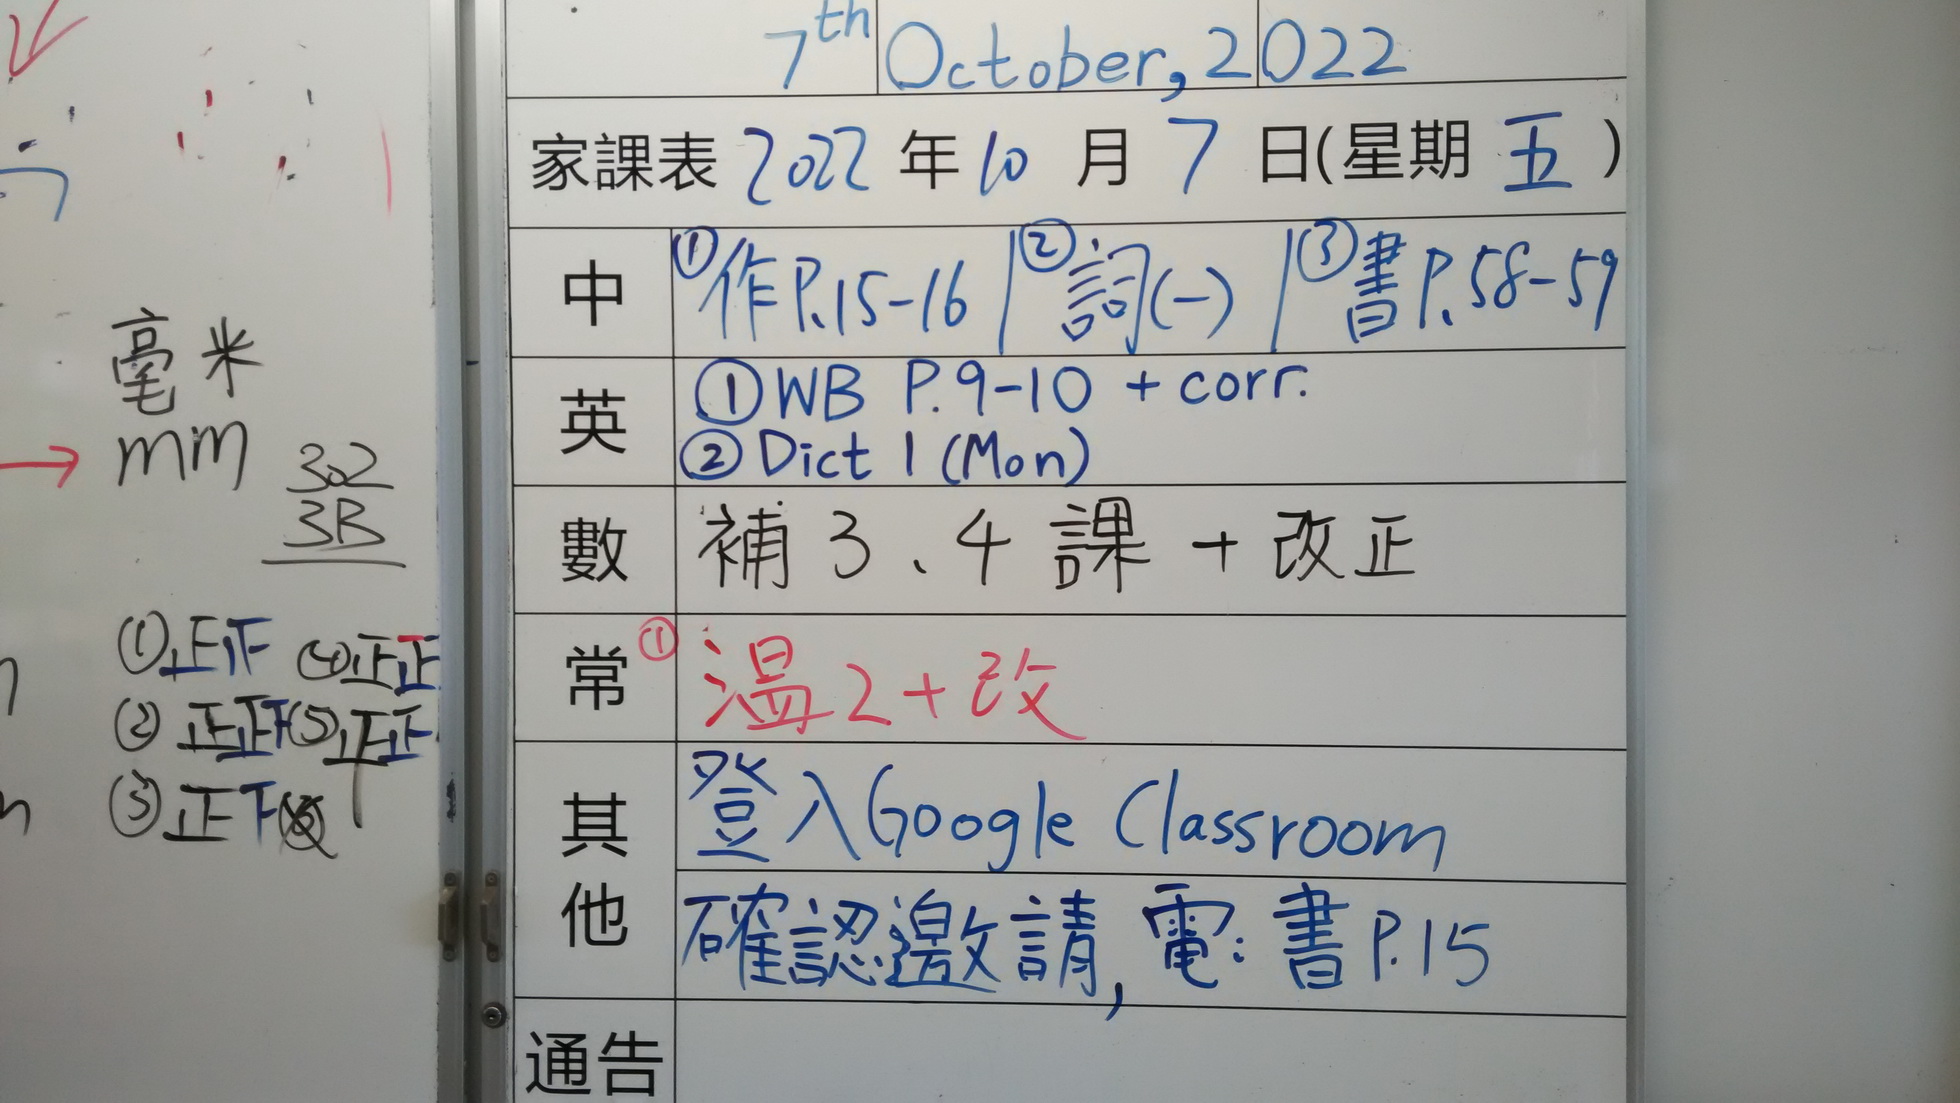 毫米
mm
302
3B
①正正 ④正正
② 正正下⑤正正
③正下
7th October, 2022
家課表 2022 年 10 月 7 日(星期 五 )
中 ①作P.15-16 | ②詞(一) | ③書P.58-59
英 ①WB P.9-10 + corr.
②Dict 1 (Mon)
數 補 3、4 課 + 改正
常 ① 溫2+改
其他 登入Google Classroom
確認邀請, 電: 書P.15
通告